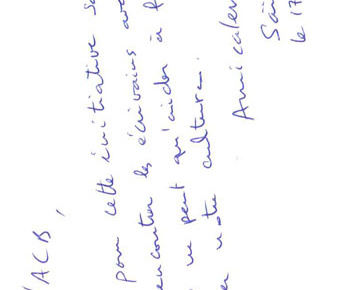 'ACB,
pour cette initiative
rencontrer les écrivains
ne peut qu'aider à
notre culture.
Amicalement
le 17